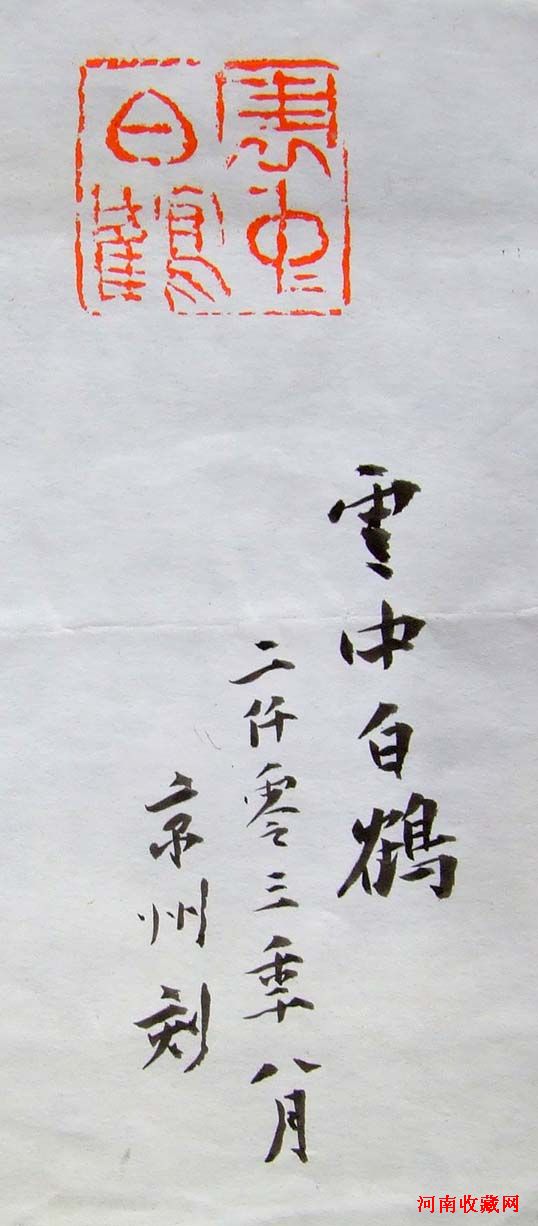 雲中白鶴
雲中白鶴
二仟零三年八月
京州刻
河南收藏网